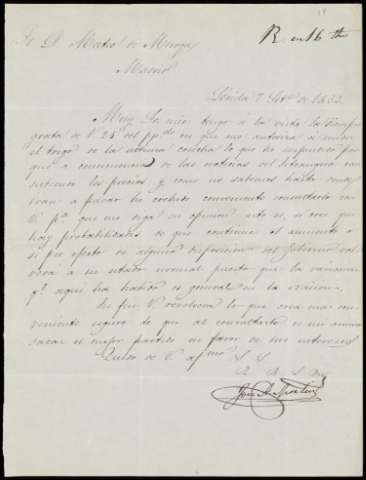 R. en 16 Stbre
Sr. D. Mateo de Murga
Madrid
Sevilla 7 Stbre de 1853.
Muy Sr. mio tengo á la vista la
grata de V. 25 del pp.do en que me autoriza á
el trigo de la actual cosecha lo que he suspendido por
que á consecuencia de las noticias del Estrangero han
subido los precios y como no sabemos hasta donde
van á parar he creido conveniente consultarlo con
V. pa. que me diga su opinion esto es, si cree que
hay probabilidades de que continúe el aumento o
si por efecto de alguna disposicion del Gobierno vol
verá á su estado normal puesto que la variacion
qe. aquí ha habido es general en la
V. resolverá lo que crea mas con
veniente seguro de que al consultarlo es mi animo
sacar el mejor partido en favor de sus intereses
Quedo de V. afmo. S. S.
Q. B. S. M.